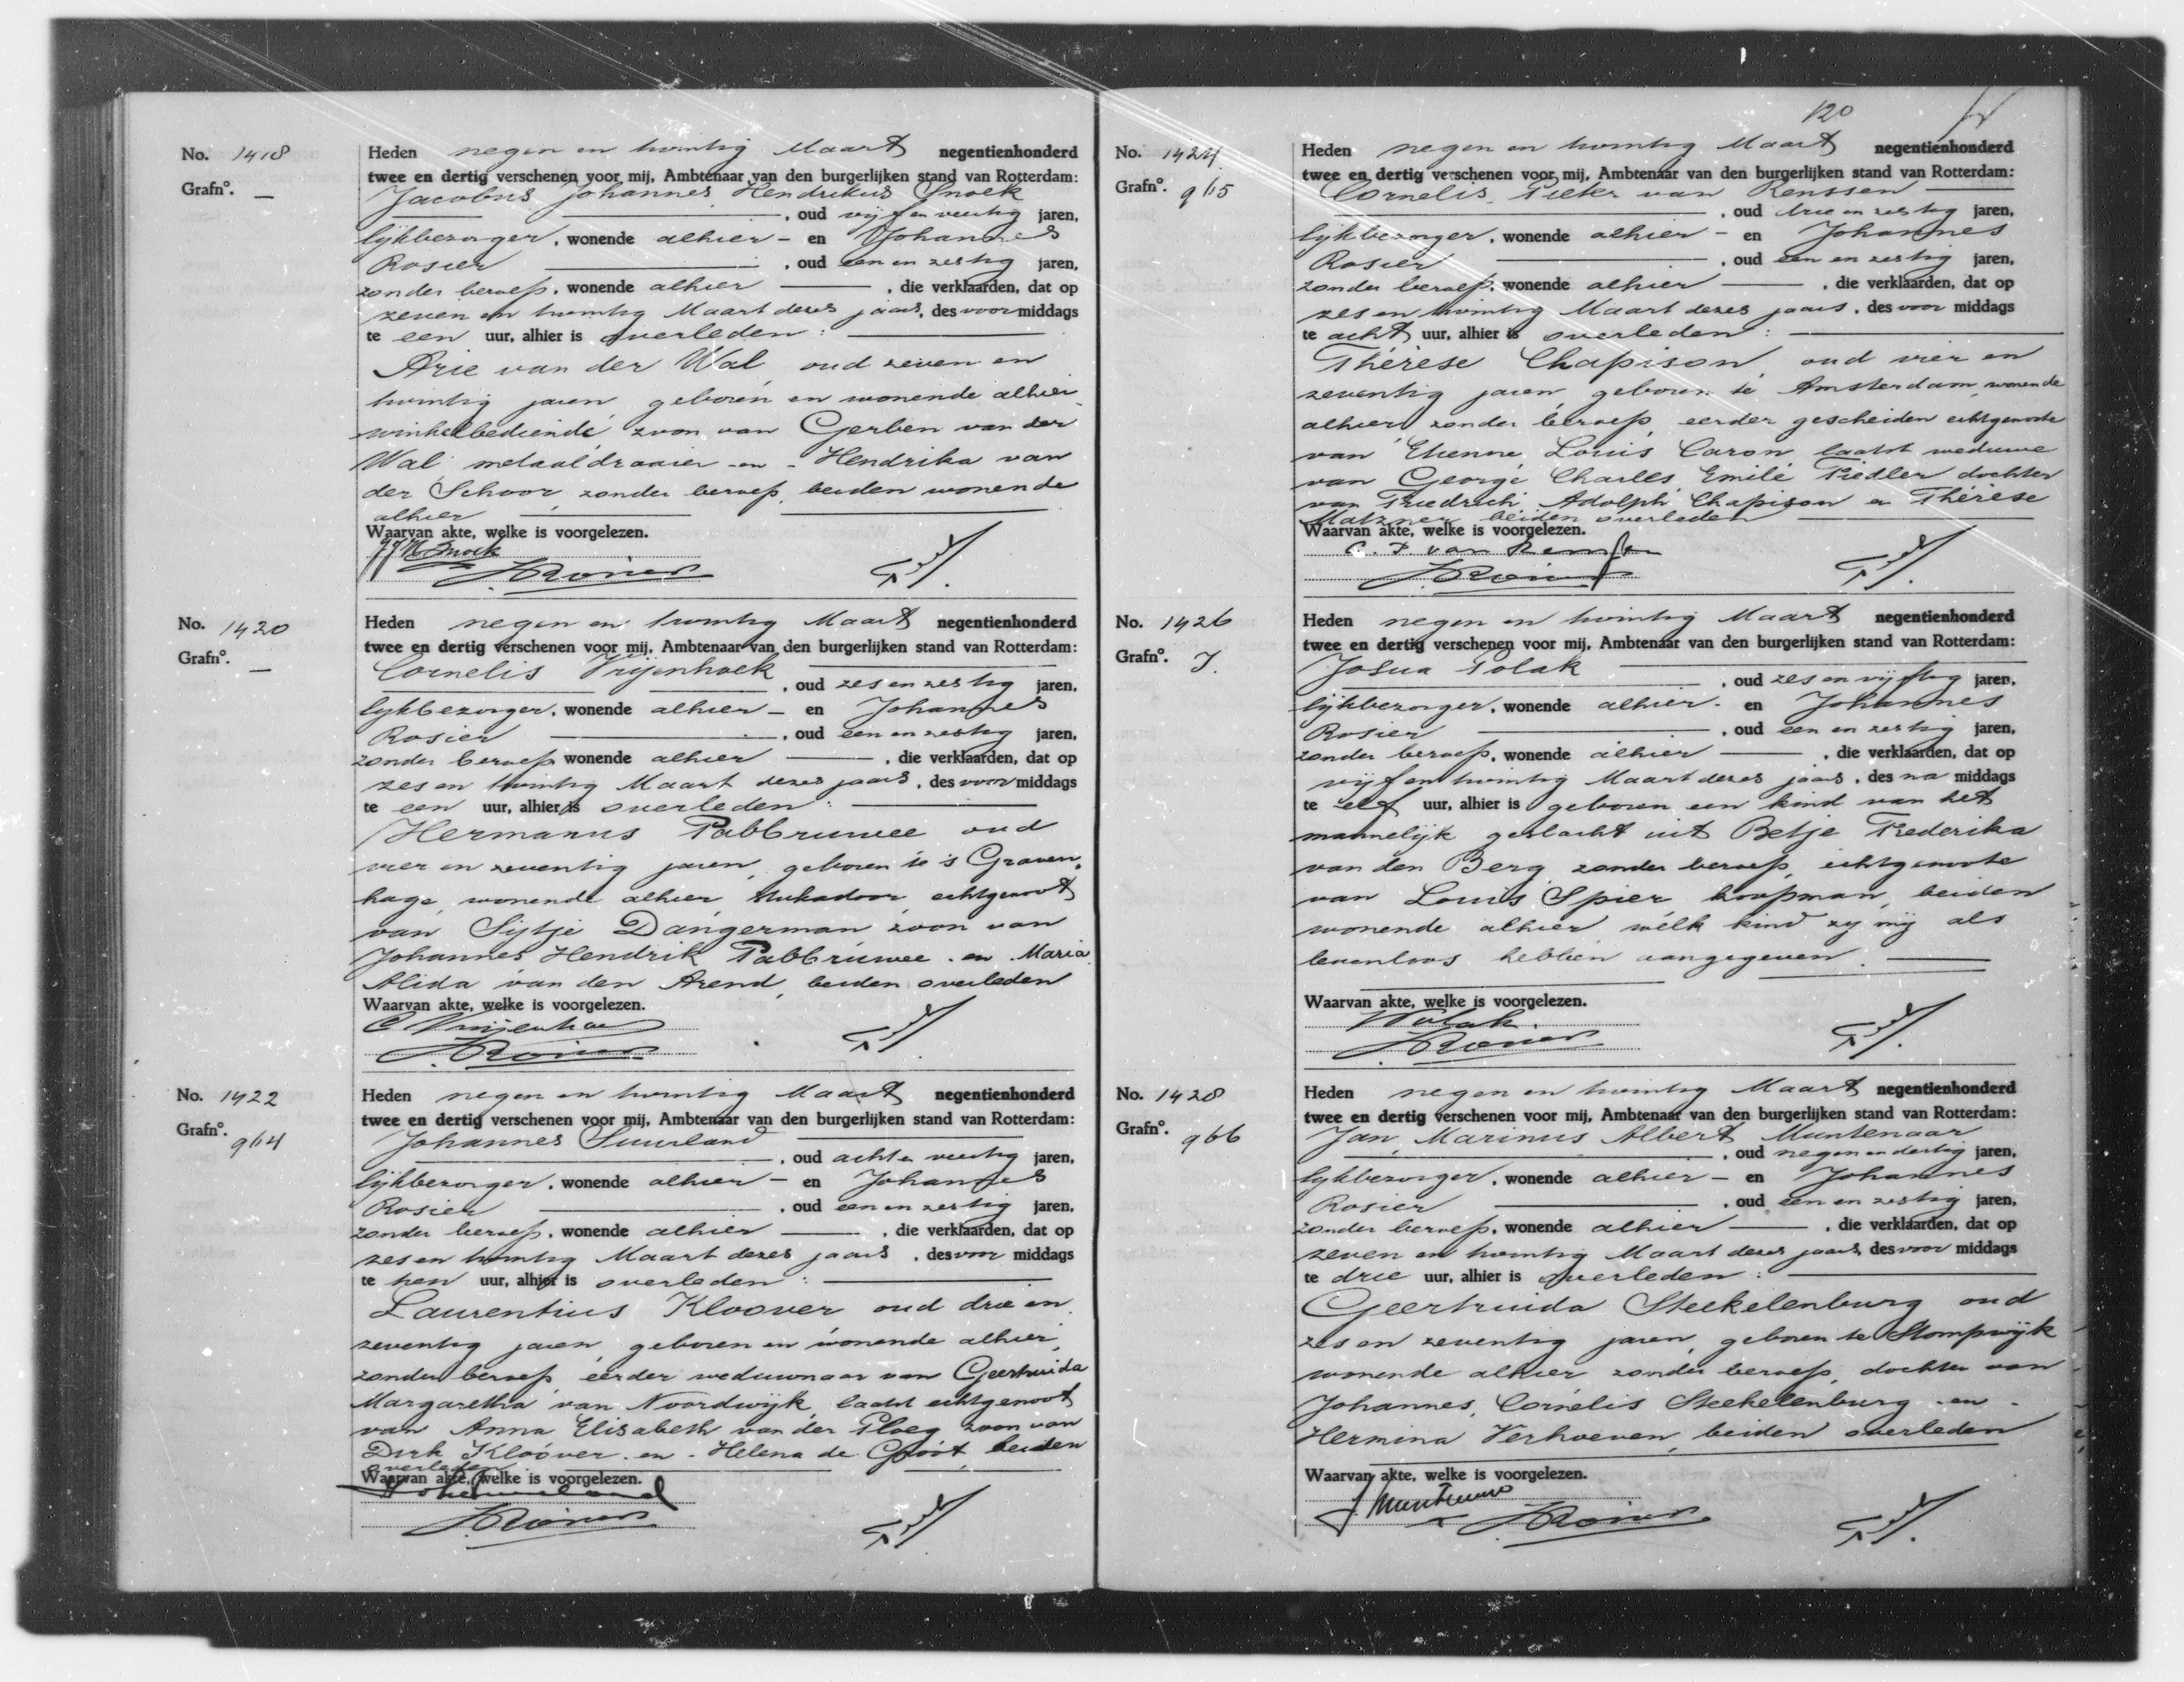 No. 1418
Grafno. —
Heden negen en twintig Maart negentienhonderd
twee en dertig verschenen voor mij, Ambtenaar van den burgerlijken stand van Rotterdam:
Jacobus Johannes Hendrikus Snoek
, oud vijf en veertig jaren,
lijkbezorger, wonende alhier - en Johannes
Rosier , oud een en zestig jaren,
zonder beroep, wonende alhier , die verklaarden, dat op
zeven en twintig Maart dezes jaars, des voormiddags
te een uur, alhier is overleden:
Arie van der Wal, oud zeven en
twintig jaren, geboren en wonende alhier
winkelbediende, zoon van Gerben van der
Wal metaaldraaier en Hendrika van
der Schoor, zonder beroep, beiden wonende
alhier
Waarvan akte, welke is voorgelezen.
JJH Snoek
J Rosier
No. 1420
Grafno. —
Heden negen en twintig Maart negentienhonderd
twee en dertig verschenen voor mij, Ambtenaar van den burgerlijken stand van Rotterdam:
Cornelis Vrijenhoek
, oud zes en zestig jaren,
lijkbezorger, wonende alhier - en Johannes
Rosier , oud een en zestig jaren,
zonder beroep wonende alhier , die verklaarden, dat op
zes en twintig Maart dezes jaars, des voormiddags
te een uur, alhier is overleden:
Hermanus Pabbruwee oud
vier en zeventig jaren, geboren te 's Graven,
hage, wonende alhier, stukadoor, echtgenoot
van Sijtje Dangerman, zoon van
Johannes Hendrik Pabbruwee en Maria
Alida van den Arend, beiden overleden
Waarvan akte, welke is voorgelezen.
C Vrijenhoek
J Rosier
No. 1422
Grafno. 964
Heden negen en twintig Maart negentienhonderd
twee en dertig verschenen voor mij, Ambtenaar van den burgerlijken stand van Rotterdam:
Johannes Suurland
, oud acht en veertig jaren,
lijkbezorger, wonende alhier - en Johannes
Rosier , oud een en zestig jaren,
zonder beroep, wonende alhier , die verklaarden, dat op
zes en twintig Maart dezes jaars, des voor middags
te tien uur, alhier is overleden:
Laurentius Kloover, oud drie en
zeventig jaren, geboren en wonende alhier,
zonder beroep, eerder weduwnaar van Geertruida
Margaretha van Noordwijk, laatst echtgenoot
van Anna Elisabeth van der Ploeg, zoon van
Dirk Kloover en Helena de Groot, beiden
overleden
Waarvan akte, welke is voorgelezen.
Joh Suurland
J Rosier
120
No. 1424
Grafno. 965
Heden negen en twintig Maart negentienhonderd
twee en dertig verschenen voor mij, Ambtenaar van den burgerlijken stand van Rotterdam:
Cornelis Pieter van Renssen
, oud drie en zestig jaren,
lijkbezorger, wonende alhier - en Johannes
Rosier , oud een en zestig jaren,
zonder beroep, wonende alhier , die verklaarden, dat op
zes en twintig Maart dezes jaars, des voor middags
te acht uur, alhier is overleden:
Thérèse Chapison, oud vier en
zeventig jaren, geboren te Amsterdam, wonende
alhier zonder beroep, eerder gescheiden echtgenoote
van Etienne Louis Caron, laatst weduwe
van George Charles Emile Fiedler dochter
van Friedrich Adolph Chapison en Thérèse
Matzner, beiden overleden
Waarvan akte, welke is voorgelezen.
C. P. van Renssen
J Rosier
No. 1426
Grafno. J.
Heden negen en twintig Maart negentienhonderd
twee en dertig verschenen voor mij, Ambtenaar van den burgerlijken stand van Rotterdam:
Josua Polak
, oud zes en vijftig jaren,
lijkbezorger, wonende alhier - en Johannes
Rosier , oud een en zestig jaren,
zonder beroep, wonende alhier , die verklaarden, dat op
vijf en twintig Maart dezes jaars, des na middags
te elf uur, alhier is geboren een kind van het
mannelijk geslacht uit Betje Frederika
van den Berg, zonder beroep, echtgenoote
van Louis Spier, koopman, beiden
wonende alhier welk kind zij mij als
levenloos hebben aangegeven.
Waarvan akte, welke is voorgelezen.
J Polak
J Rosier
No. 1428
Grafno. 966
Heden negen en twintig Maart negentienhonderd
twee en dertig verschenen voor mij, Ambtenaar van den burgerlijken stand van Rotterdam:
Jan Marinus Albert Muntenaar
, oud negen en dertig jaren,
lijkbezorger, wonende alhier - en Johannes
Rosier , oud een en zestig jaren,
zonder beroep, wonende alhier , die verklaarden, dat op
zeven en twintig Maart dezes jaars, des voor middags
te drie uur, alhier is overleden:
Geertruida Steekelenburg oud
zes en zeventig jaren, geboren te Stompwijk
wonende alhier zonder beroep, dochter van
Johannes Cornelis Steekelenburg en
Hermina Verhoeven, beiden overleden
Waarvan akte, welke is voorgelezen.
J Muntenaar
J Rosier